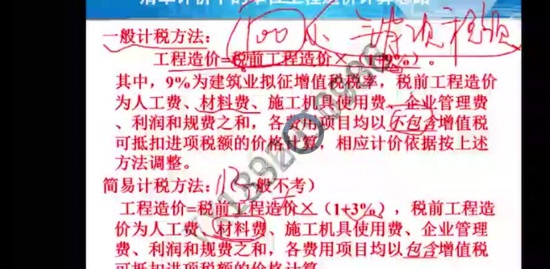 清单计价下的单位工程造价计算思路
一般计税方法：
工程造价=税前工程造价×（1+9%）。
其中，9%为建筑业拟征增值税税率，税前工程造价
为人工费、材料费、施工机具使用费、企业管理费
、利润和规费之和，各费用项目均以不包含增值税
可抵扣进项税额的价格计算，相应计价依据按上述
方法调整。
简易计税方法：（一般不考）
工程造价=税前工程造价×（1+3%），税前工程造
价为人工费、材料费、施工机具使用费、企业管理
费、利润和规费之和，各费用项目均以包含增值税
可抵扣进项税额的价格计算。